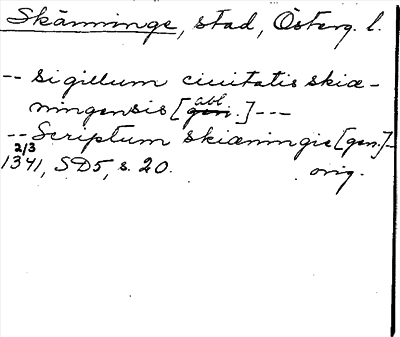 Skänninge, stad, Österg. l.
-- sigillum ciuitatis skiæ-
ningensis [gen. abl.] ---
-- Scriptum skiæningie [gen.]-
1341, 2/3 SD5, s. 20. orig.